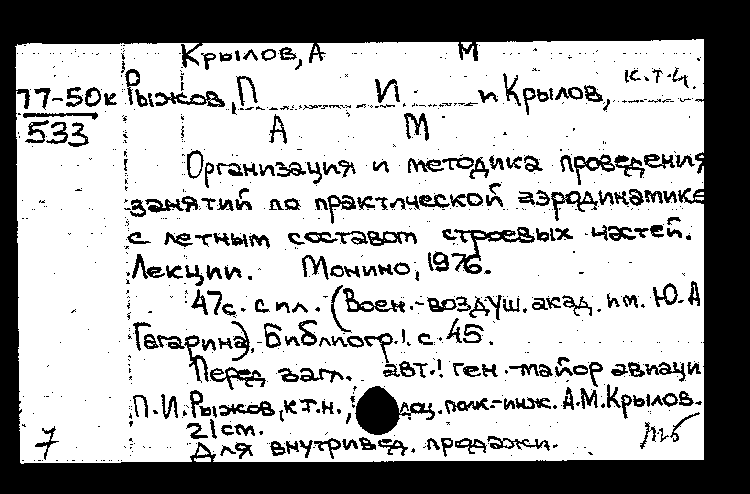 Крылов, А М
77-50к Рыжов, П И. и Крылов, к.т.н.
533 А М
Организация и методика проведения
занятий по практической аэродинамике
с летным составом строевых частей.
Лекции. Монино, 1976.
47с. с ил. (Воен.-воздуш. акад. им. Ю.А
Гагарина). Библиогр.: с. 45.
Перед загл. авт.: ген.-майор авиаци
П.И. Рыжов, к.т.н., доц. полк.-инж. А.М. Крылов.
21 cm.
7 Для внутривед. продажи. тб